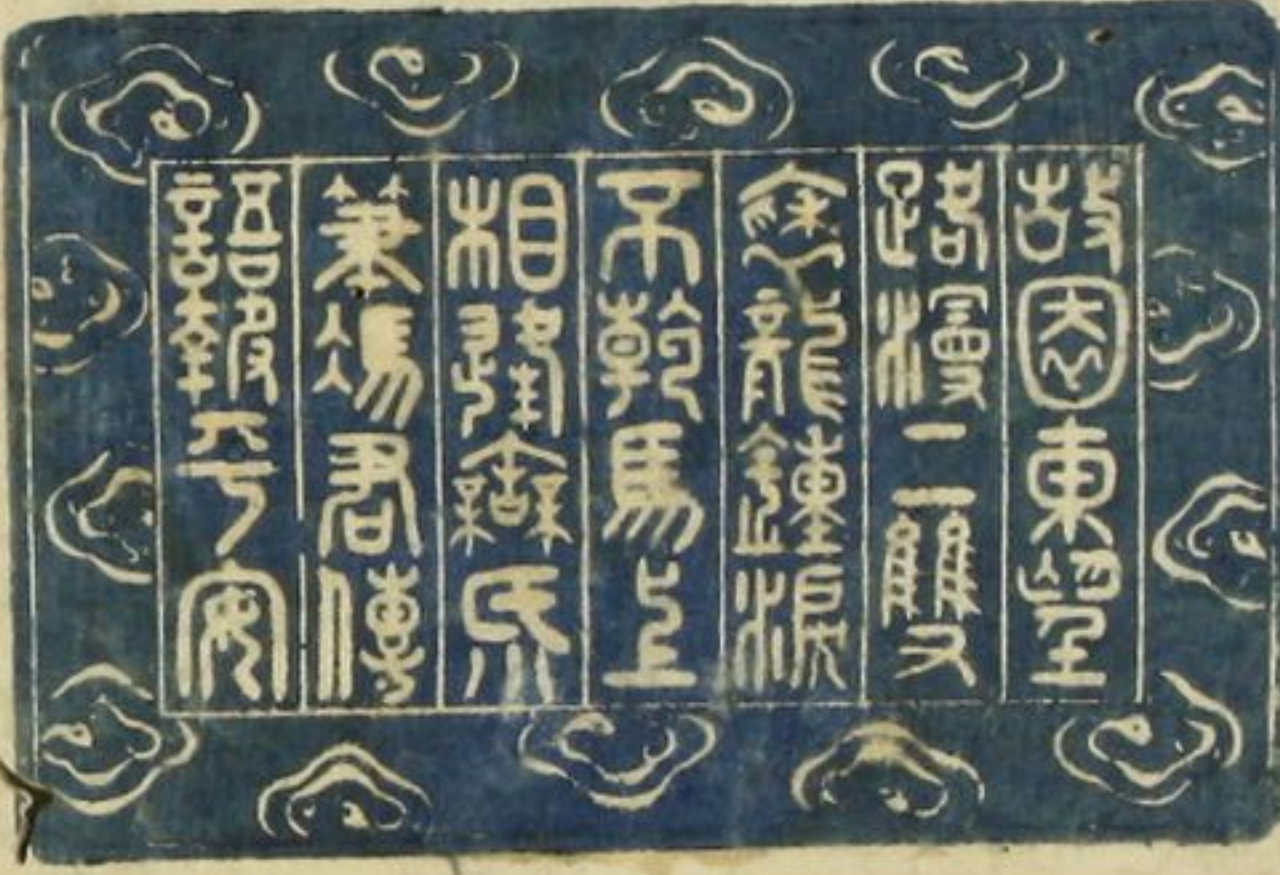 故園東望
路漫二雙
袖龍鍾淚
不乾馬上
相逢無紙
筆馮君傳
語報平安